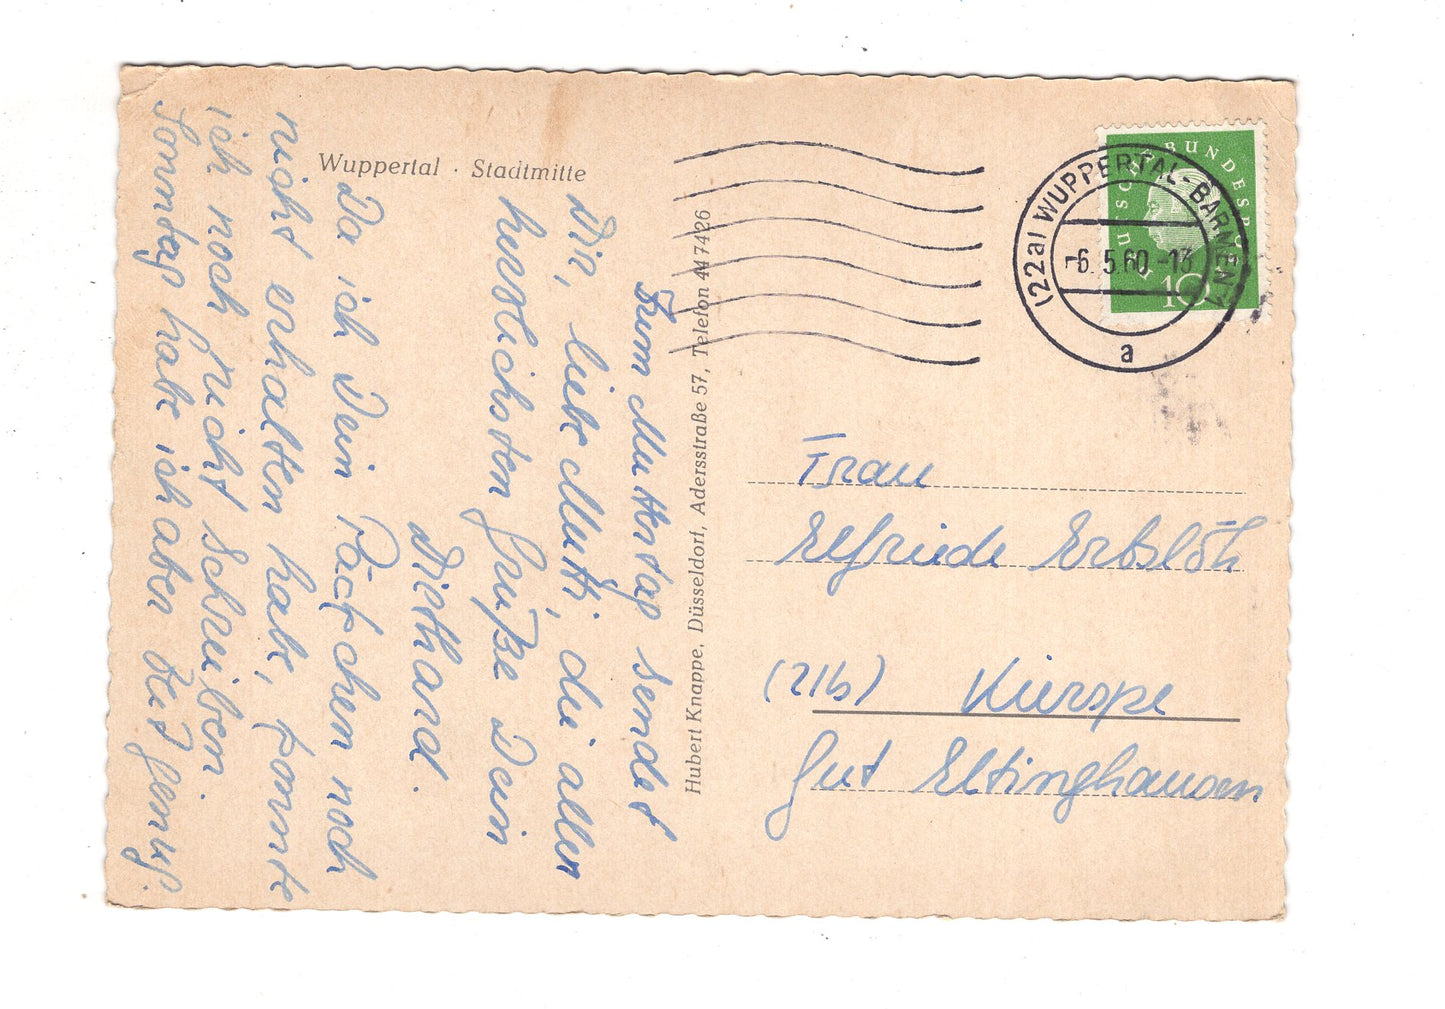 Wuppertal · Stadtmitte
Zum Muttertag sendet
Dir, liebe Mutti, die aller
herzlichsten Grüße Dein
Diethard
Da ich Dein Päckchen noch
nicht erhalten habe, konnte
ich noch nicht schreiben.
Sonntag habe ich aber Zeit genug.
Hubert Knappe, Düsseldorf, Adersstraße 57, Telefon 44 74 26
DEUTSCHE BUNDESPOST
10
(22a) WUPPERTAL-BARMEN 1
-6.5.60-13
a
Frau
Elfriede Erbslöh
(21b) Kierspe
Gut Eltinghausen